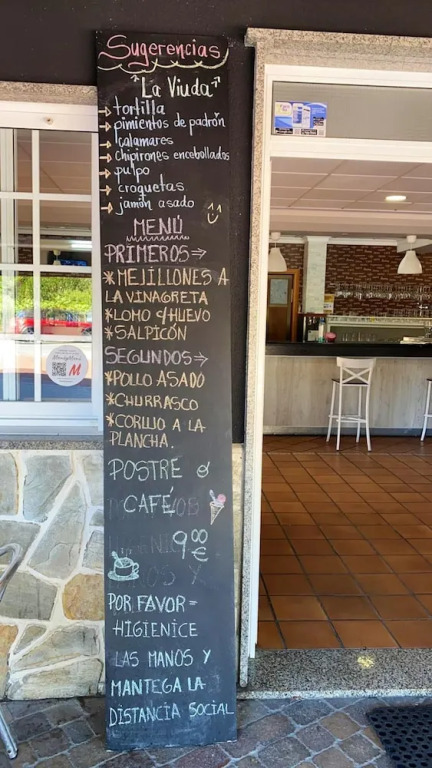 Sugerencias
"La Viuda"
→tortilla
→pimientos de padrón
→calamares
→chipirones encebollados
→pulpo
→croquetas
→jamón asado
MENÚ
PRIMEROS→
*MEJILLONES A
LA VINAGRETA
*LOMO C/HUEVO
*SALPICÓN
SEGUNDOS→
*POLLO ASADO
*CHURRASCO
*CORUJO A LA
PLANCHA.
POSTRE ó
CAFÉ
9'00
€
POR FAVOR=
HIGIENICE
LAS MANOS Y
MANTEGA LA
DISTANCIA SOCIAL